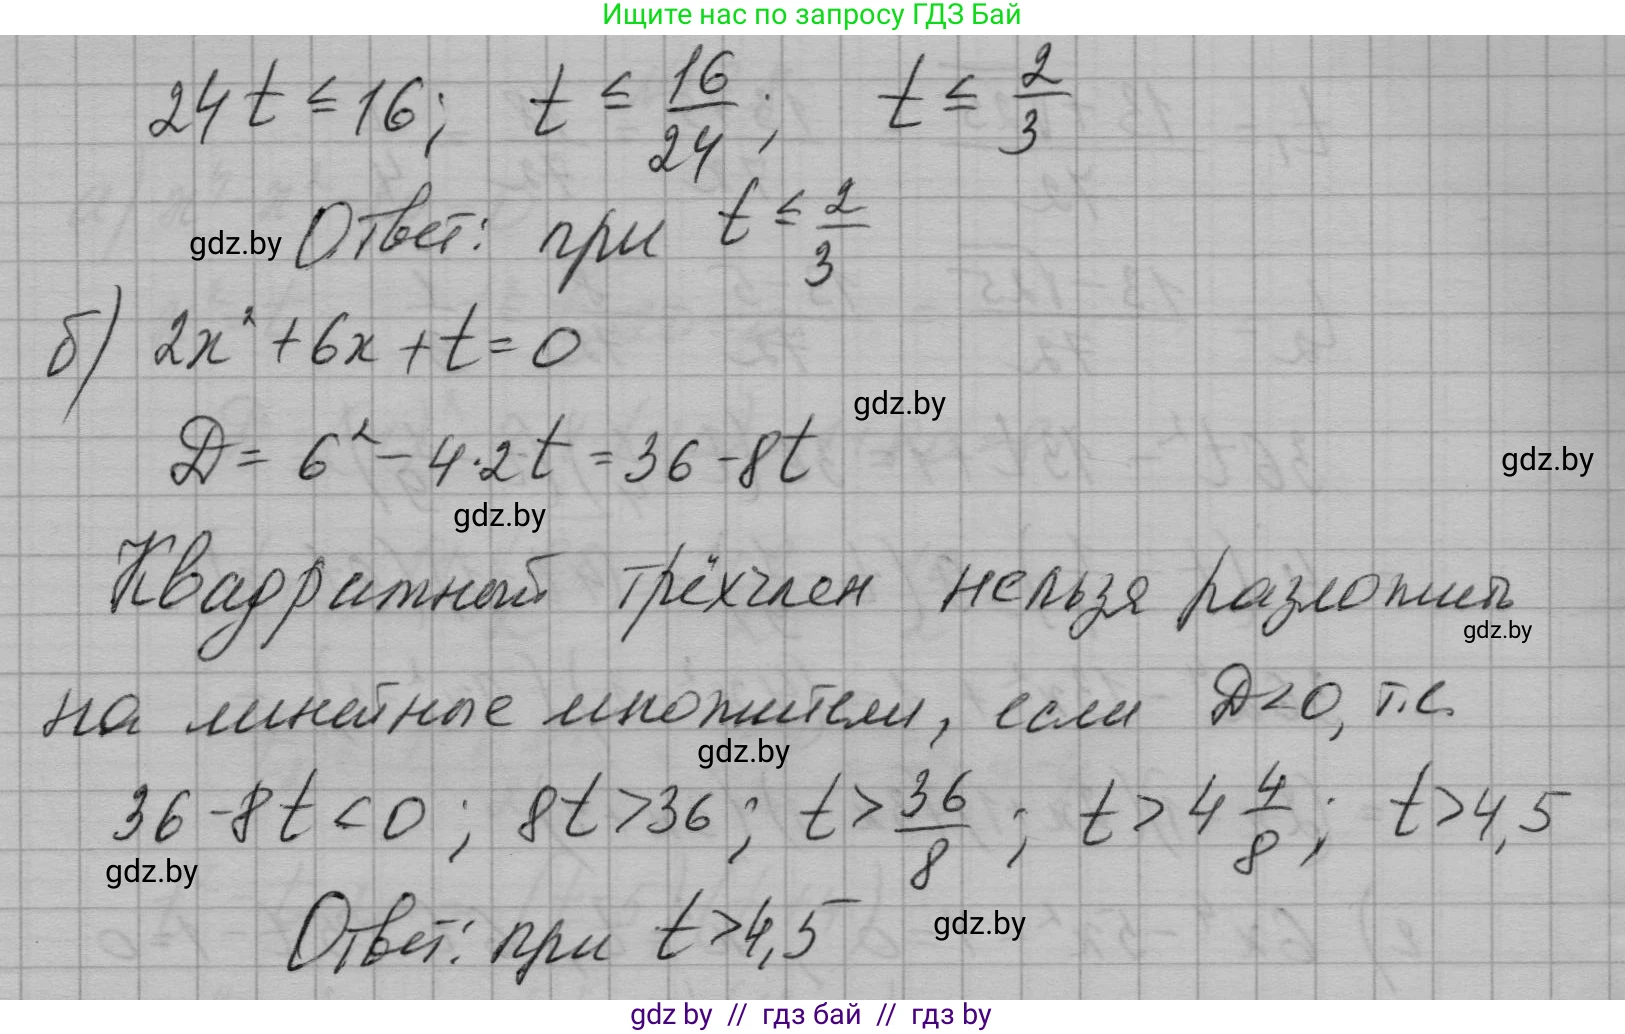 Ищите нас по запросу ГДЗ Бай
24t ≤ 16; t ≤ 16/24; t ≤ 2/3
gdz.by Ответ: при t ≤ 2/3
б) 2x² + 6x + t = 0
gdz.by
D = 6² - 4·2t = 36 - 8t
gdz.by
gdz.by
Квадратный трёхчлен нельзя разложить
gdz.by
на линейные множители, если D<0, т.е.
gdz.by
36 - 8t < 0; 8t > 36; t > 36/8; t > 4 4/8; t > 4,5
gdz.by
Ответ: при t > 4,5
gdz.by
gdz by // гдз бай // гдз by